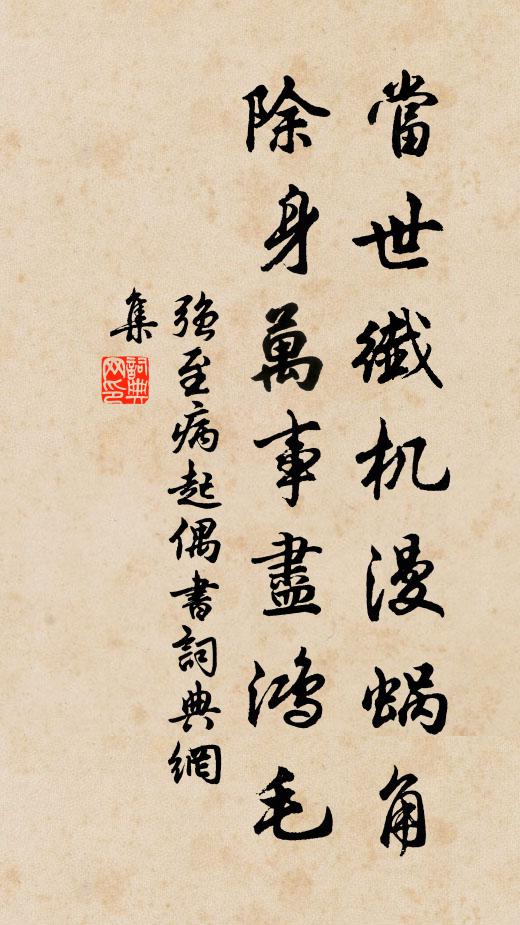 當世纖机漫蝸角
除身萬事盡鴻毛
強至病起偶書詞典網
集
詞典
网印